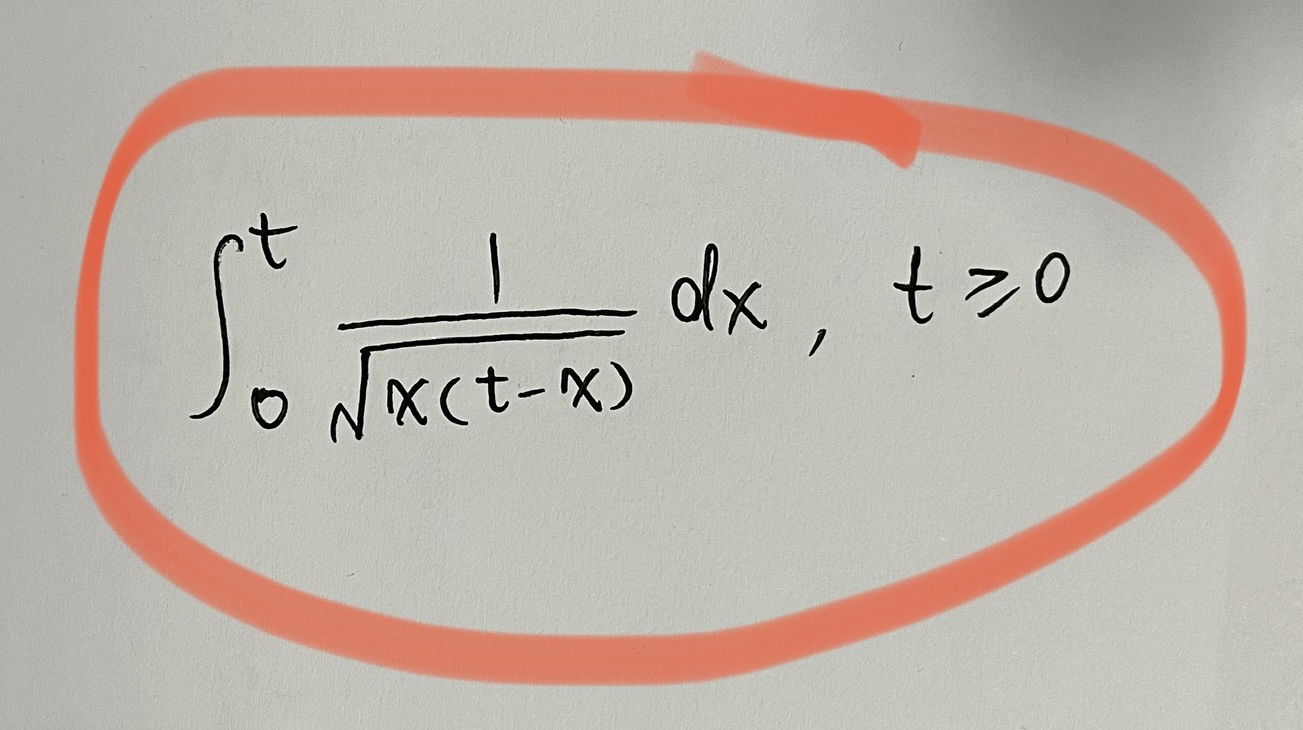 ∫₀ᵗ 1/√(x(t-x)) dx, t ≥ 0